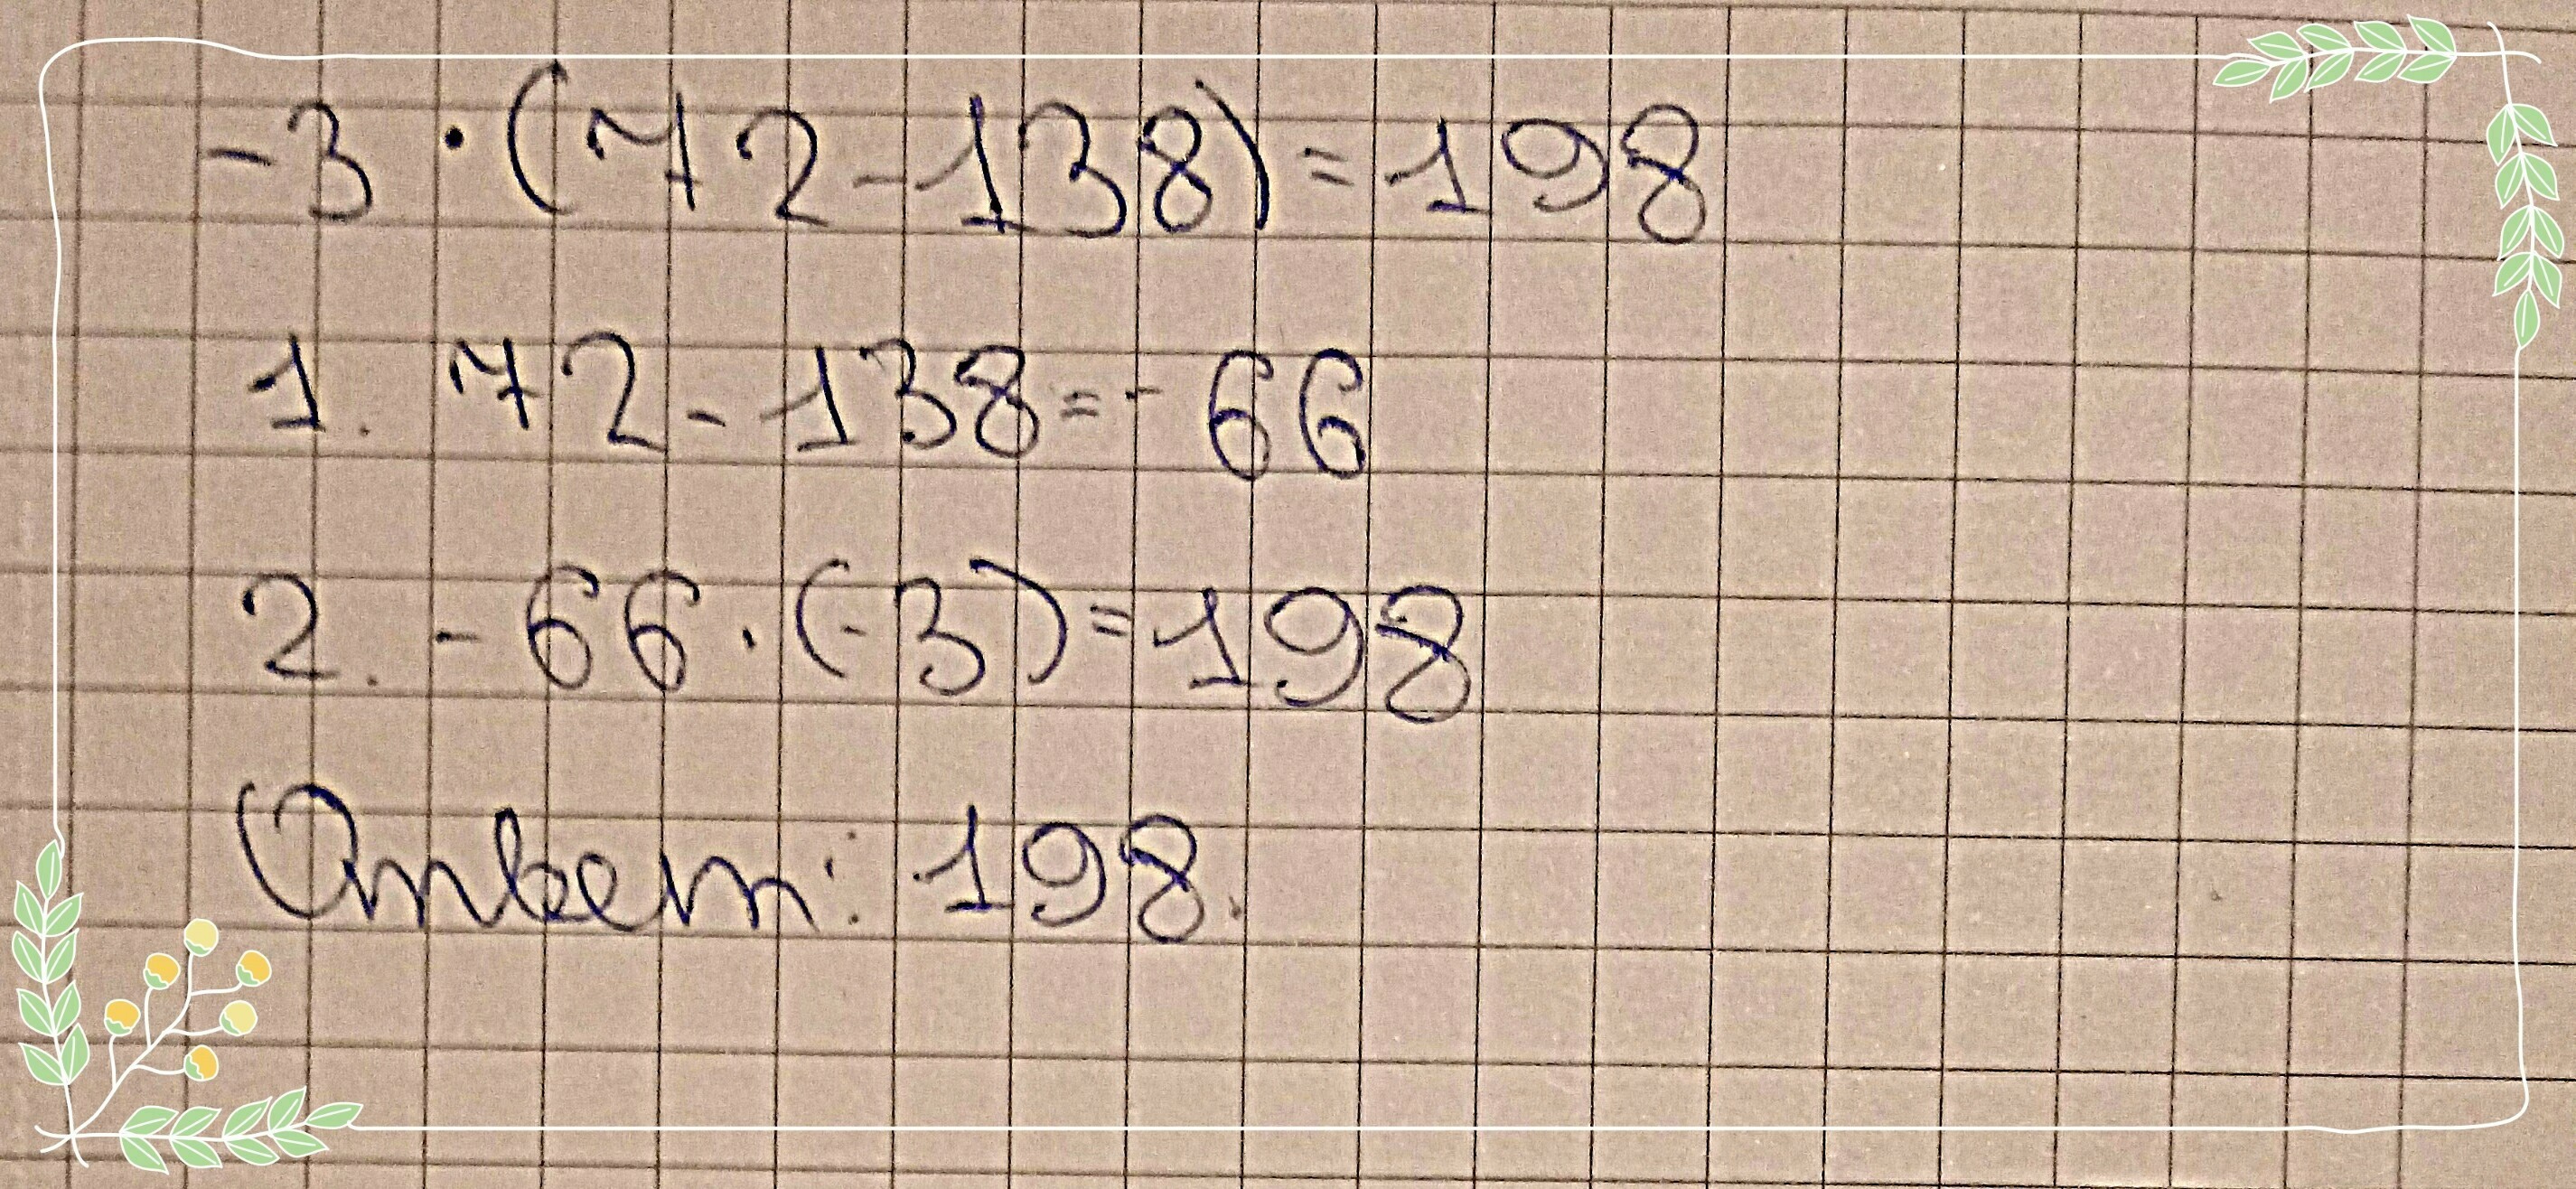 -3 · (72 - 138) = 198
1. 72 - 138 = - 66
2. - 66 · (-3) = 198
Ответ: 198.